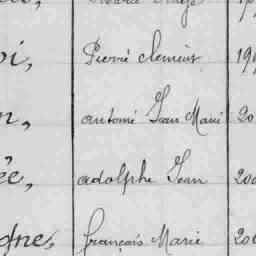 oi, Pierre clement 19
n, antome Jean Marie 20
ée, adolphe Jean 200
gne, françois Marie 20